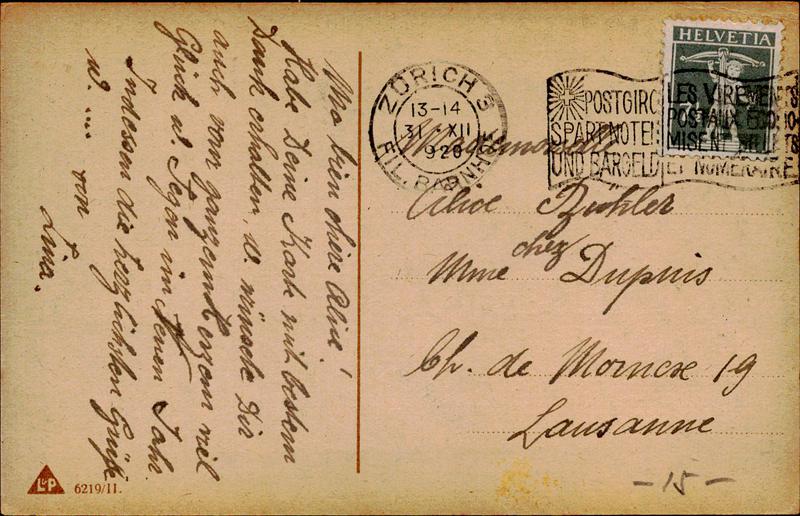 Ma bien chère Alice!
Habe Deine Karte mit bestem
Dank erhalten, u. wünsche Dir
auch von ganzem Herzen viel
Glück u. Segen im Neuen Jahr
Indessen die herzlichsten Grüße
u. .... von
Lina.
L&P 6219/II.
HELVETIA
ZÜRICH 3
13-14
31 XII
1920
FIL. BAHNHOF
POSTGIRO
SPART NOTEN
UND BARGELD
LES VIREMENTS
POSTAUX ECONO
MISENT BILLETS
ET NUMERAIRE
Mademoiselle
Alice
chez
Mme Dupuis
Ch. de Mornex 19
Lausanne
-15-